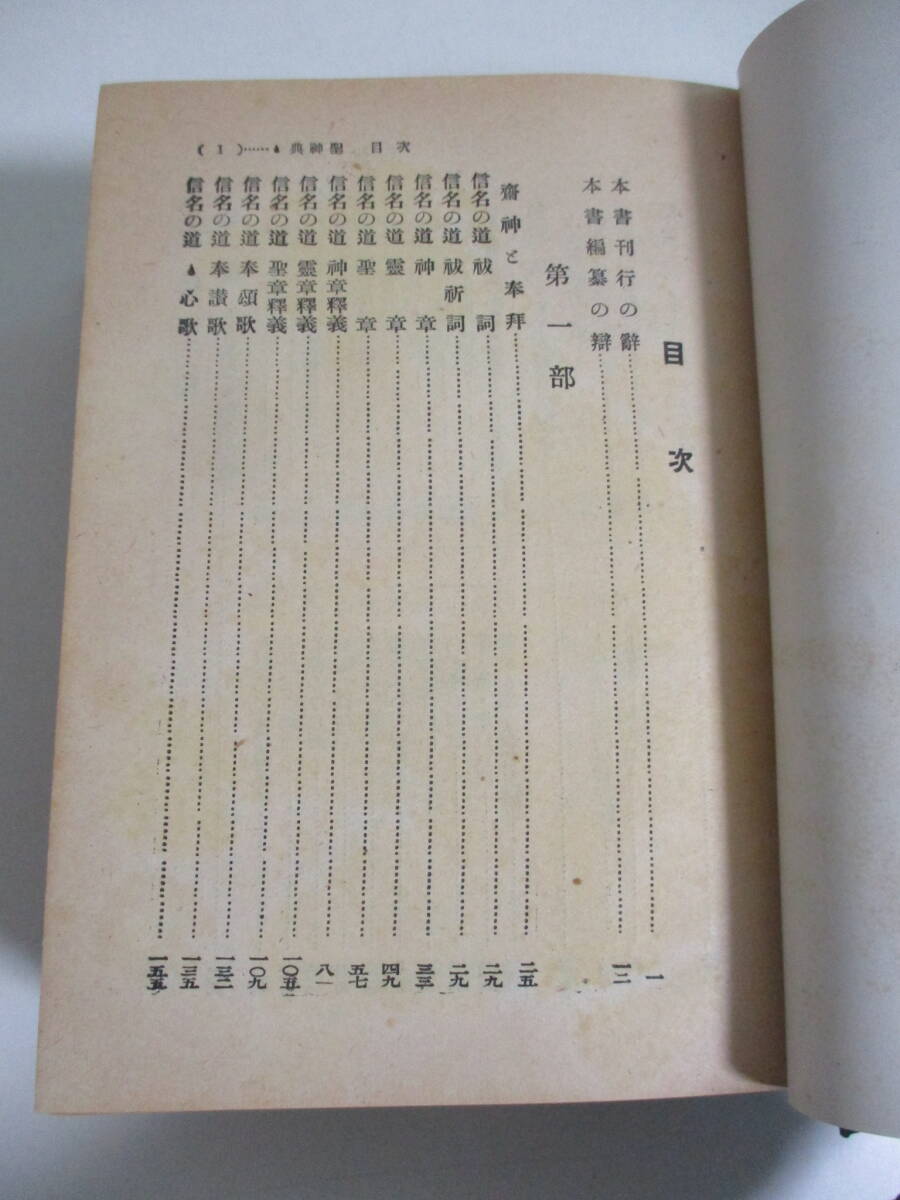 ( 1 )……🌢 典神聖 目 次
目次
本書刊行の辭……一
本書編纂の辯……一二
第一部
齋神と奉拜……二五
信名の道 祓詞……二九
信名の道 祓祈詞……二九
信名の道 神章……三三
信名の道 靈章……四九
信名の道 聖章……五七
信名の道 神章釋義……八一
信名の道 靈章釋義……一〇五
信名の道 聖章釋義……一〇九
信名の道 奉頌歌……
信名の道 奉讃歌……一三五
信名の道 🌢心歌……一五五